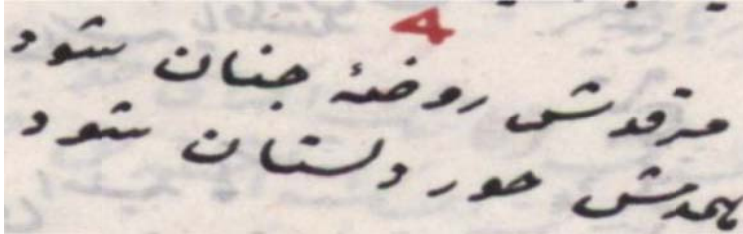 ۴
مرقدش روضهٔ جنان شود
همدمش حور دلستان شود